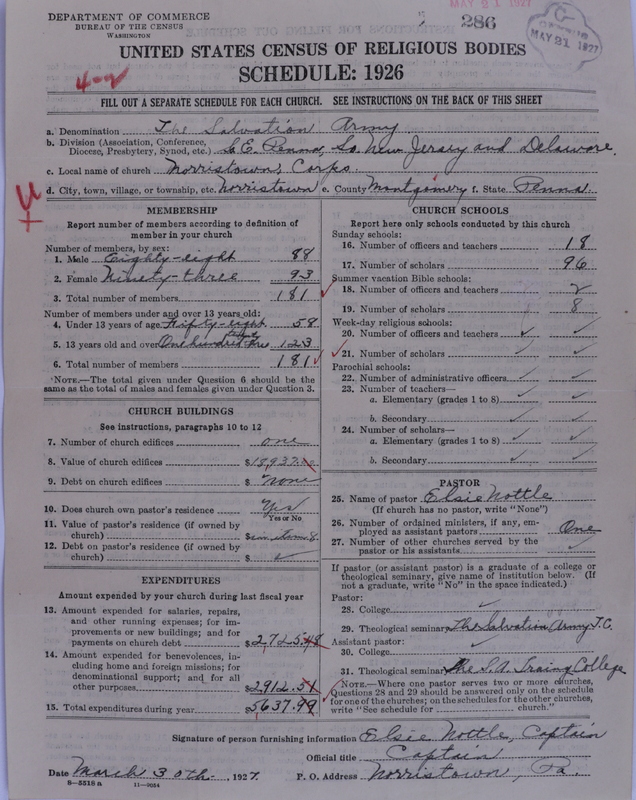 DEPARTMENT OF COMMERCE
BUREAU OF THE CENSUS
WASHINGTON
MAY 21 1927
286
CENSUS
MAY 21 1927
UNITED STATES CENSUS OF RELIGIOUS BODIES
SCHEDULE: 1926
FILL OUT A SEPARATE SCHEDULE FOR EACH CHURCH. SEE INSTRUCTIONS ON THE BACK OF THIS SHEET
a. Denomination The Salvation Army
b. Division (Association, Conference,
Diocese, Presbytery, Synod, etc.) S.E. Penna, So. New Jersey and Delaware.
c. Local name of church Norristown, Corps.
d. City, town, village, or township, etc. Norristown e. County Montgomery f. State Penna.
MEMBERSHIP
Report number of members according to definition of
member in your church
Number of members, by sex:
1. Male Eighty-eight 88
2. Female Ninety-three 93
3. Total number of members 181
Number of members under and over 13 years old:
4. Under 13 years of age Fifty-eight 58
5. 13 years old and over One hundred 123
6. Total number of members 181
NOTE.—The total given under Question 6 should be the
same as the total of males and females given under Question 3.
CHURCH BUILDINGS
See instructions, paragraphs 10 to 12
7. Number of church edifices one
8. Value of church edifices $18937.
9. Debt on church edifices $ none
10. Does church own pastor's residence Yes
Yes or No
11. Value of pastor's residence (if owned by
church) $
12. Debt on pastor's residence (if owned by
church) $
EXPENDITURES
Amount expended by your church during last fiscal year
13. Amount expended for salaries, repairs,
and other running expenses; for im-
provements or new buildings; and for
payments on church debt $2,725.48
14. Amount expended for benevolences, in-
cluding home and foreign missions; for
denominational support; and for all
other purposes $2912.51
15. Total expenditures during year $5637.99
CHURCH SCHOOLS
Report here only schools conducted by this church
Sunday schools:
16. Number of officers and teachers 18
17. Number of scholars 96
Summer vacation Bible schools:
18. Number of officers and teachers 2
19. Number of scholars 8
Week-day religious schools:
20. Number of officers and teachers ✓ ✓
21. Number of scholars ✓ ✓
Parochial schools:
22. Number of administrative officers ✓ ✓
23. Number of teachers—
a. Elementary (grades 1 to 8) ✓ ✓
b. Secondary ✓ ✓
24. Number of scholars—
a. Elementary (grades 1 to 8) ✓ ✓
b. Secondary ✓ ✓
PASTOR
25. Name of pastor Elsie Nottle
(If church has no pastor, write "None")
26. Number of ordained ministers, if any, em-
ployed as assistant pastors One
27. Number of other churches served by the
pastor or his assistants ✓
If pastor (or assistant pastor) is a graduate of a college or
theological seminary, give name of institution below. (If
not a graduate, write "No" in the space indicated.)
Pastor:
28. College ✓
29. Theological seminary The Salvation Army T.C.
Assistant pastor:
30. College ✓
31. Theological seminary The S.A. Traing College
NOTE.—Where one pastor serves two or more churches,
Questions 28 and 29 should be answered only on the schedule
for one of the churches; on the schedules for the other churches,
write "See schedule for ____ church."
Signature of person furnishing information Elsie Nottle, Captain
Official title Captain
Date March 30th, 1927. P. O. Address Norristown, Pa.
8—5518 a 11—9034